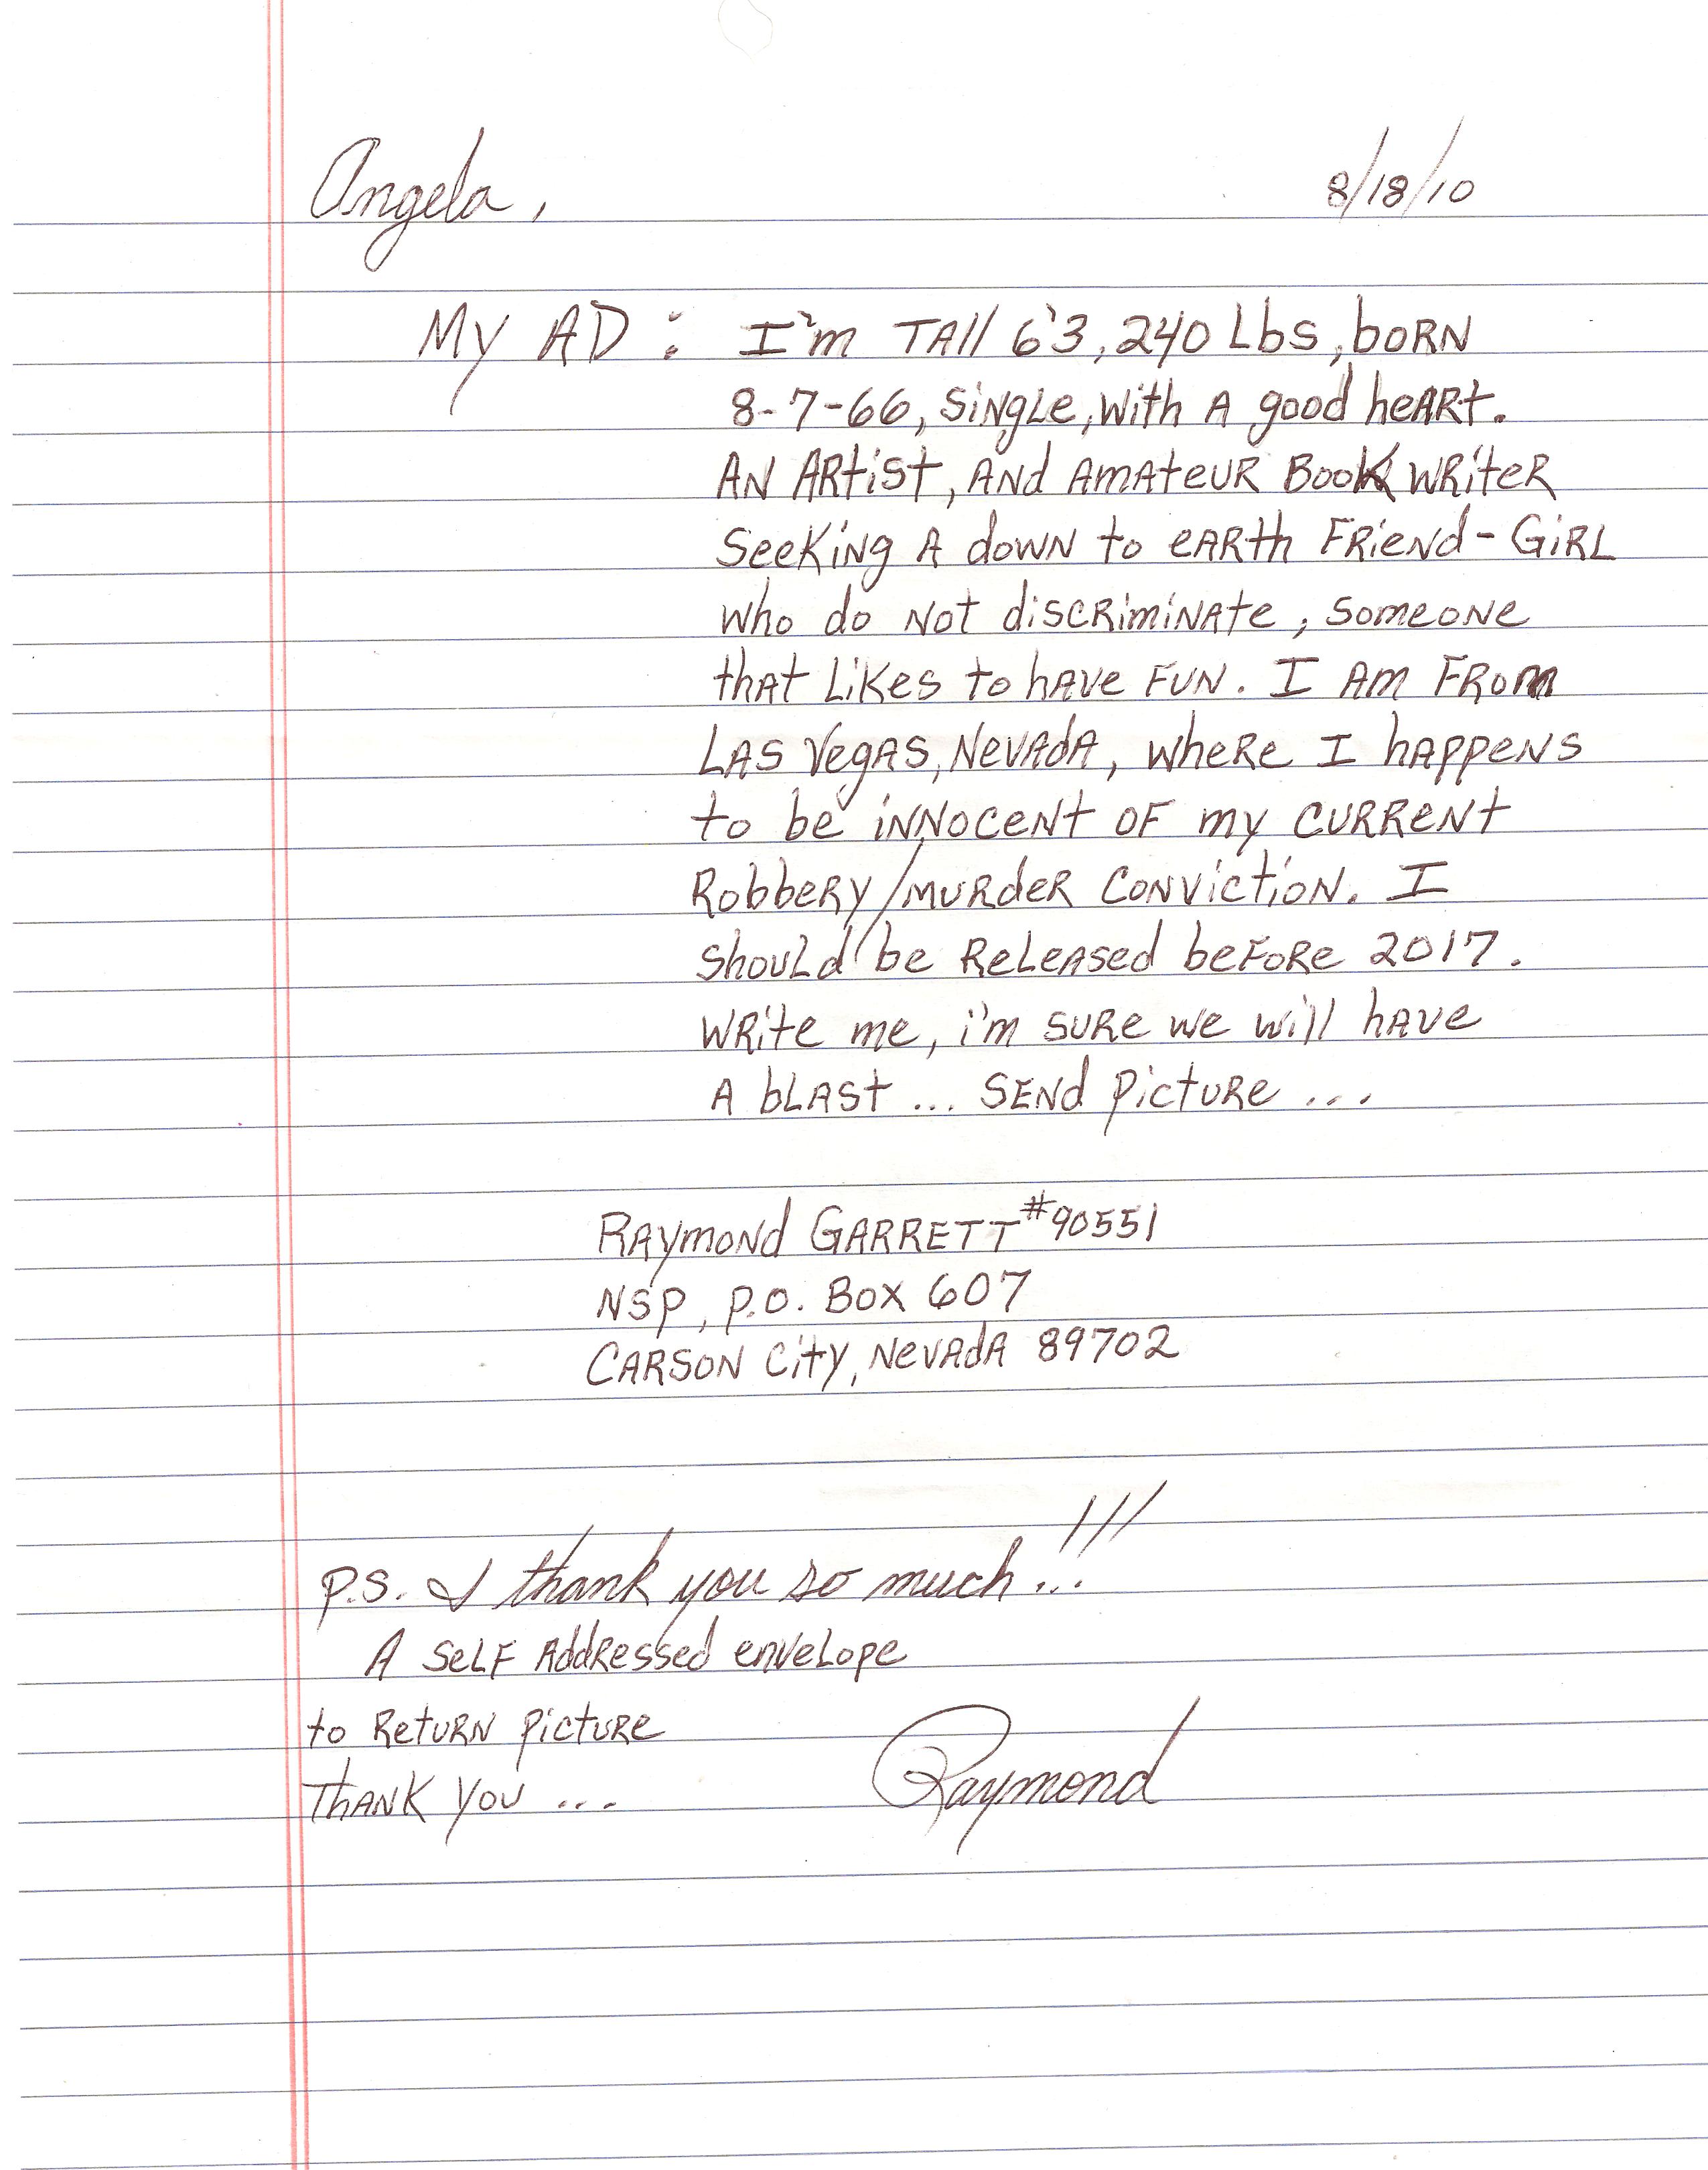 Angela, 8/18/10
My AD: I'm TAll 6'3, 240 Lbs, boRN
8-7-66, SiNgLe, with A good heARt.
AN ARtiSt, ANd AmAteUR BooK WRiteR
SeeKiNg A dowN to eARth FRieNd-GiRL
who do Not discRimiNAte, SomeoNe
thAt LiKes to hAve FUN. I Am FRom
LAS VegAS, NevAdA, wheRe I hAppeNS
to be iNNoceNt OF my CURReNt
RobbeRy/mURdeR CoNvictioN. I
ShoULd be ReLeASed beFoRe 2017.
WRite me, i'm SURe we will hAve
A bLASt ... SENd PictURe ...
RAymoNd GARRETT #90551
NSP, P.O. Box 607
CARSoN City, NevAdA 89702
P.S. I thank you so much...!!!
A SeLF AddRessed enveLope
to RetURN PictURe
ThANK You ...
Raymond